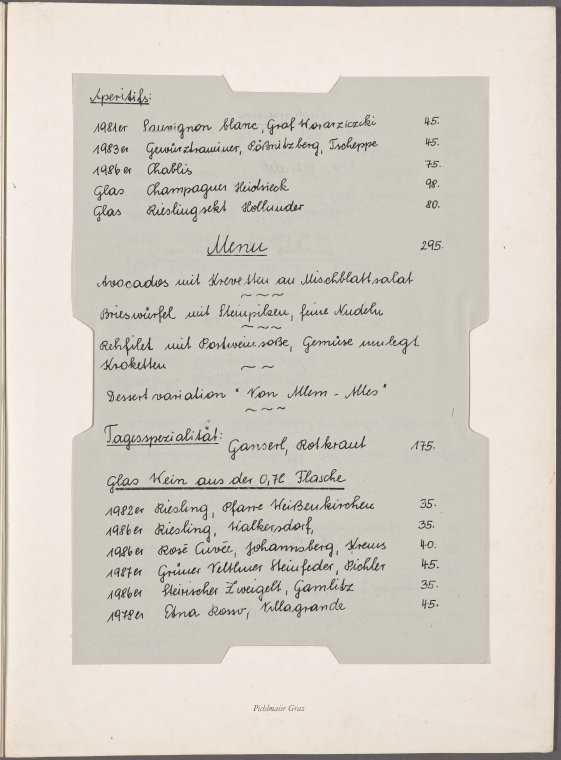 Aperitifs:
1981er Sauvignon blanc, Graf Worarziczki 45.
1983er Gewürztraminer, Pößnitzberg, Tscheppe 45.
1986er Chablis 75.
Glas Champagner Heidsieck 98.
Glas Rieslingsekt Hollunder 80.
Menu 295.
Avocados mit Krevetten an Mischblattsalat
Brieswürfel mit Steinpilzen, feine Nudeln
Rehfilet mit Portweinsoße, Gemüse umlegt
Kroketten
Dessertvariation "Von Allem - Alles"
Tagesspezialität: Ganserl, Rotkraut 175.
Glas Wein aus der 0,7l Flasche
1982er Riesling, Pfarre Weißenkirchen 35.
1986er Riesling, Walkersdorf, 35.
1986er Rosé Cuvée, Johannsberg, Krems 40.
1987er Grüner Veltliner Steinfeder, Pichler 45.
1986er Steirischer Zweigelt, Gamlitz 35.
1978er Etna Rosso, Villagrande 45.
Pichlmaier Graz